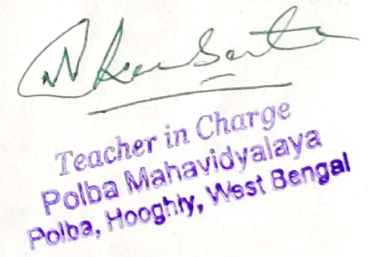 Teacher in Charge
Polba Mahavidyalaya
Polba, Hooghly, West Bengal